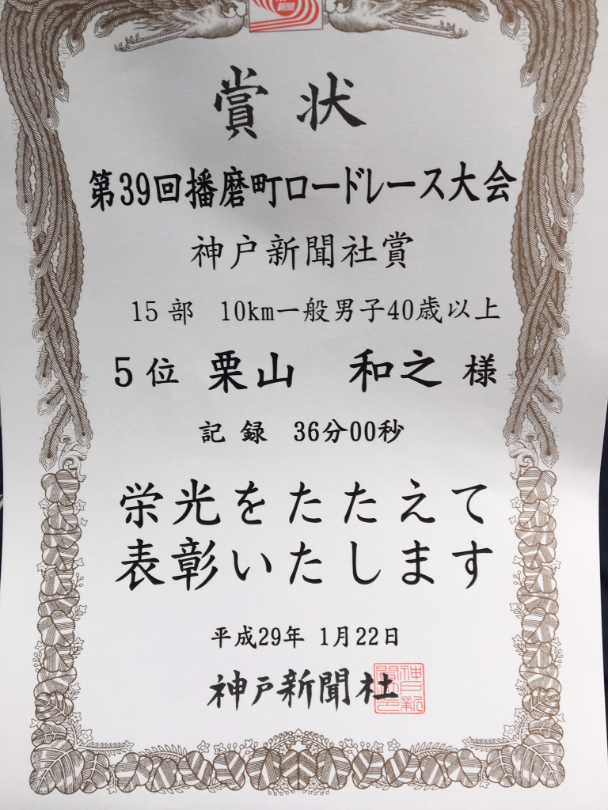 賞状
第39回播磨町ロードレース大会
神戸新聞社賞
15部 10km一般男子40歳以上
5位 栗山 和之 様
記録 36分00秒
栄光をたたえて
表彰いたします
平成29年 1月22日
神戸新聞社